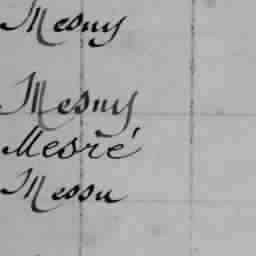 Mesny
Mesny
Mesré
Messu